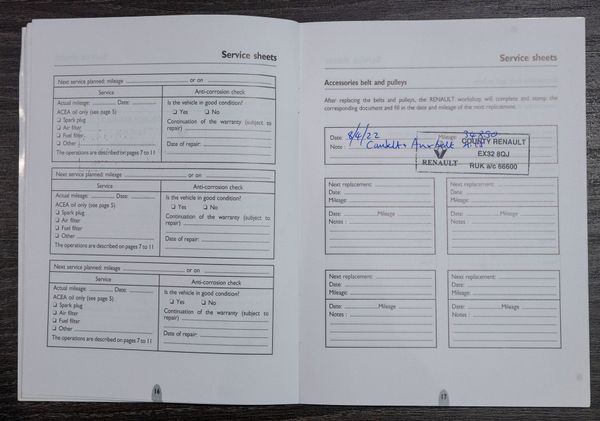 Service sheets
Next service planned: mileage or on
Service
Anti-corrosion check
Actual mileage: Date:
ACEA oil only (see page 5)
❏ Spark plug
❏ Air filter
❏ Fuel filter
❏ Other
The operations are described on pages 7 to 11
Is the vehicle in good condition?
❏ Yes ❏ No
Continuation of the warranty (subject to
repair)
Date of repair:
Next service planned: mileage or on
Service
Anti-corrosion check
Actual mileage: Date:
ACEA oil only (see page 5)
❏ Spark plug
❏ Air filter
❏ Fuel filter
❏ Other
The operations are described on pages 7 to 11
Is the vehicle in good condition?
❏ Yes ❏ No
Continuation of the warranty (subject to
repair)
Date of repair:
Next service planned: mileage or on
Service
Anti-corrosion check
Actual mileage: Date:
ACEA oil only (see page 5)
❏ Spark plug
❏ Air filter
❏ Fuel filter
❏ Other
The operations are described on pages 7 to 11
Is the vehicle in good condition?
❏ Yes ❏ No
Continuation of the warranty (subject to
repair)
Date of repair:
16
Service sheets
Accessories belt and pulleys
After replacing the belts and pulleys, the RENAULT workshop will complete and stamp the
corresponding document and fill in the date and mileage of the next replacement.
Date: 8/4/22 Mileage
Note : Aux belt
COUNTY RENAULT
EX32 8QJ
RUK a/c 66600
RENAULT
Next replacement:
Date:
Mileage:
Date: Mileage
Notes :
Next replacement:
Date:
Mileage:
Date: Mileage
Notes :
Next replacement:
Date:
Mileage:
Date: Mileage
Notes :
Next replacement:
Date:
Mileage:
Date: Mileage
Notes :
17